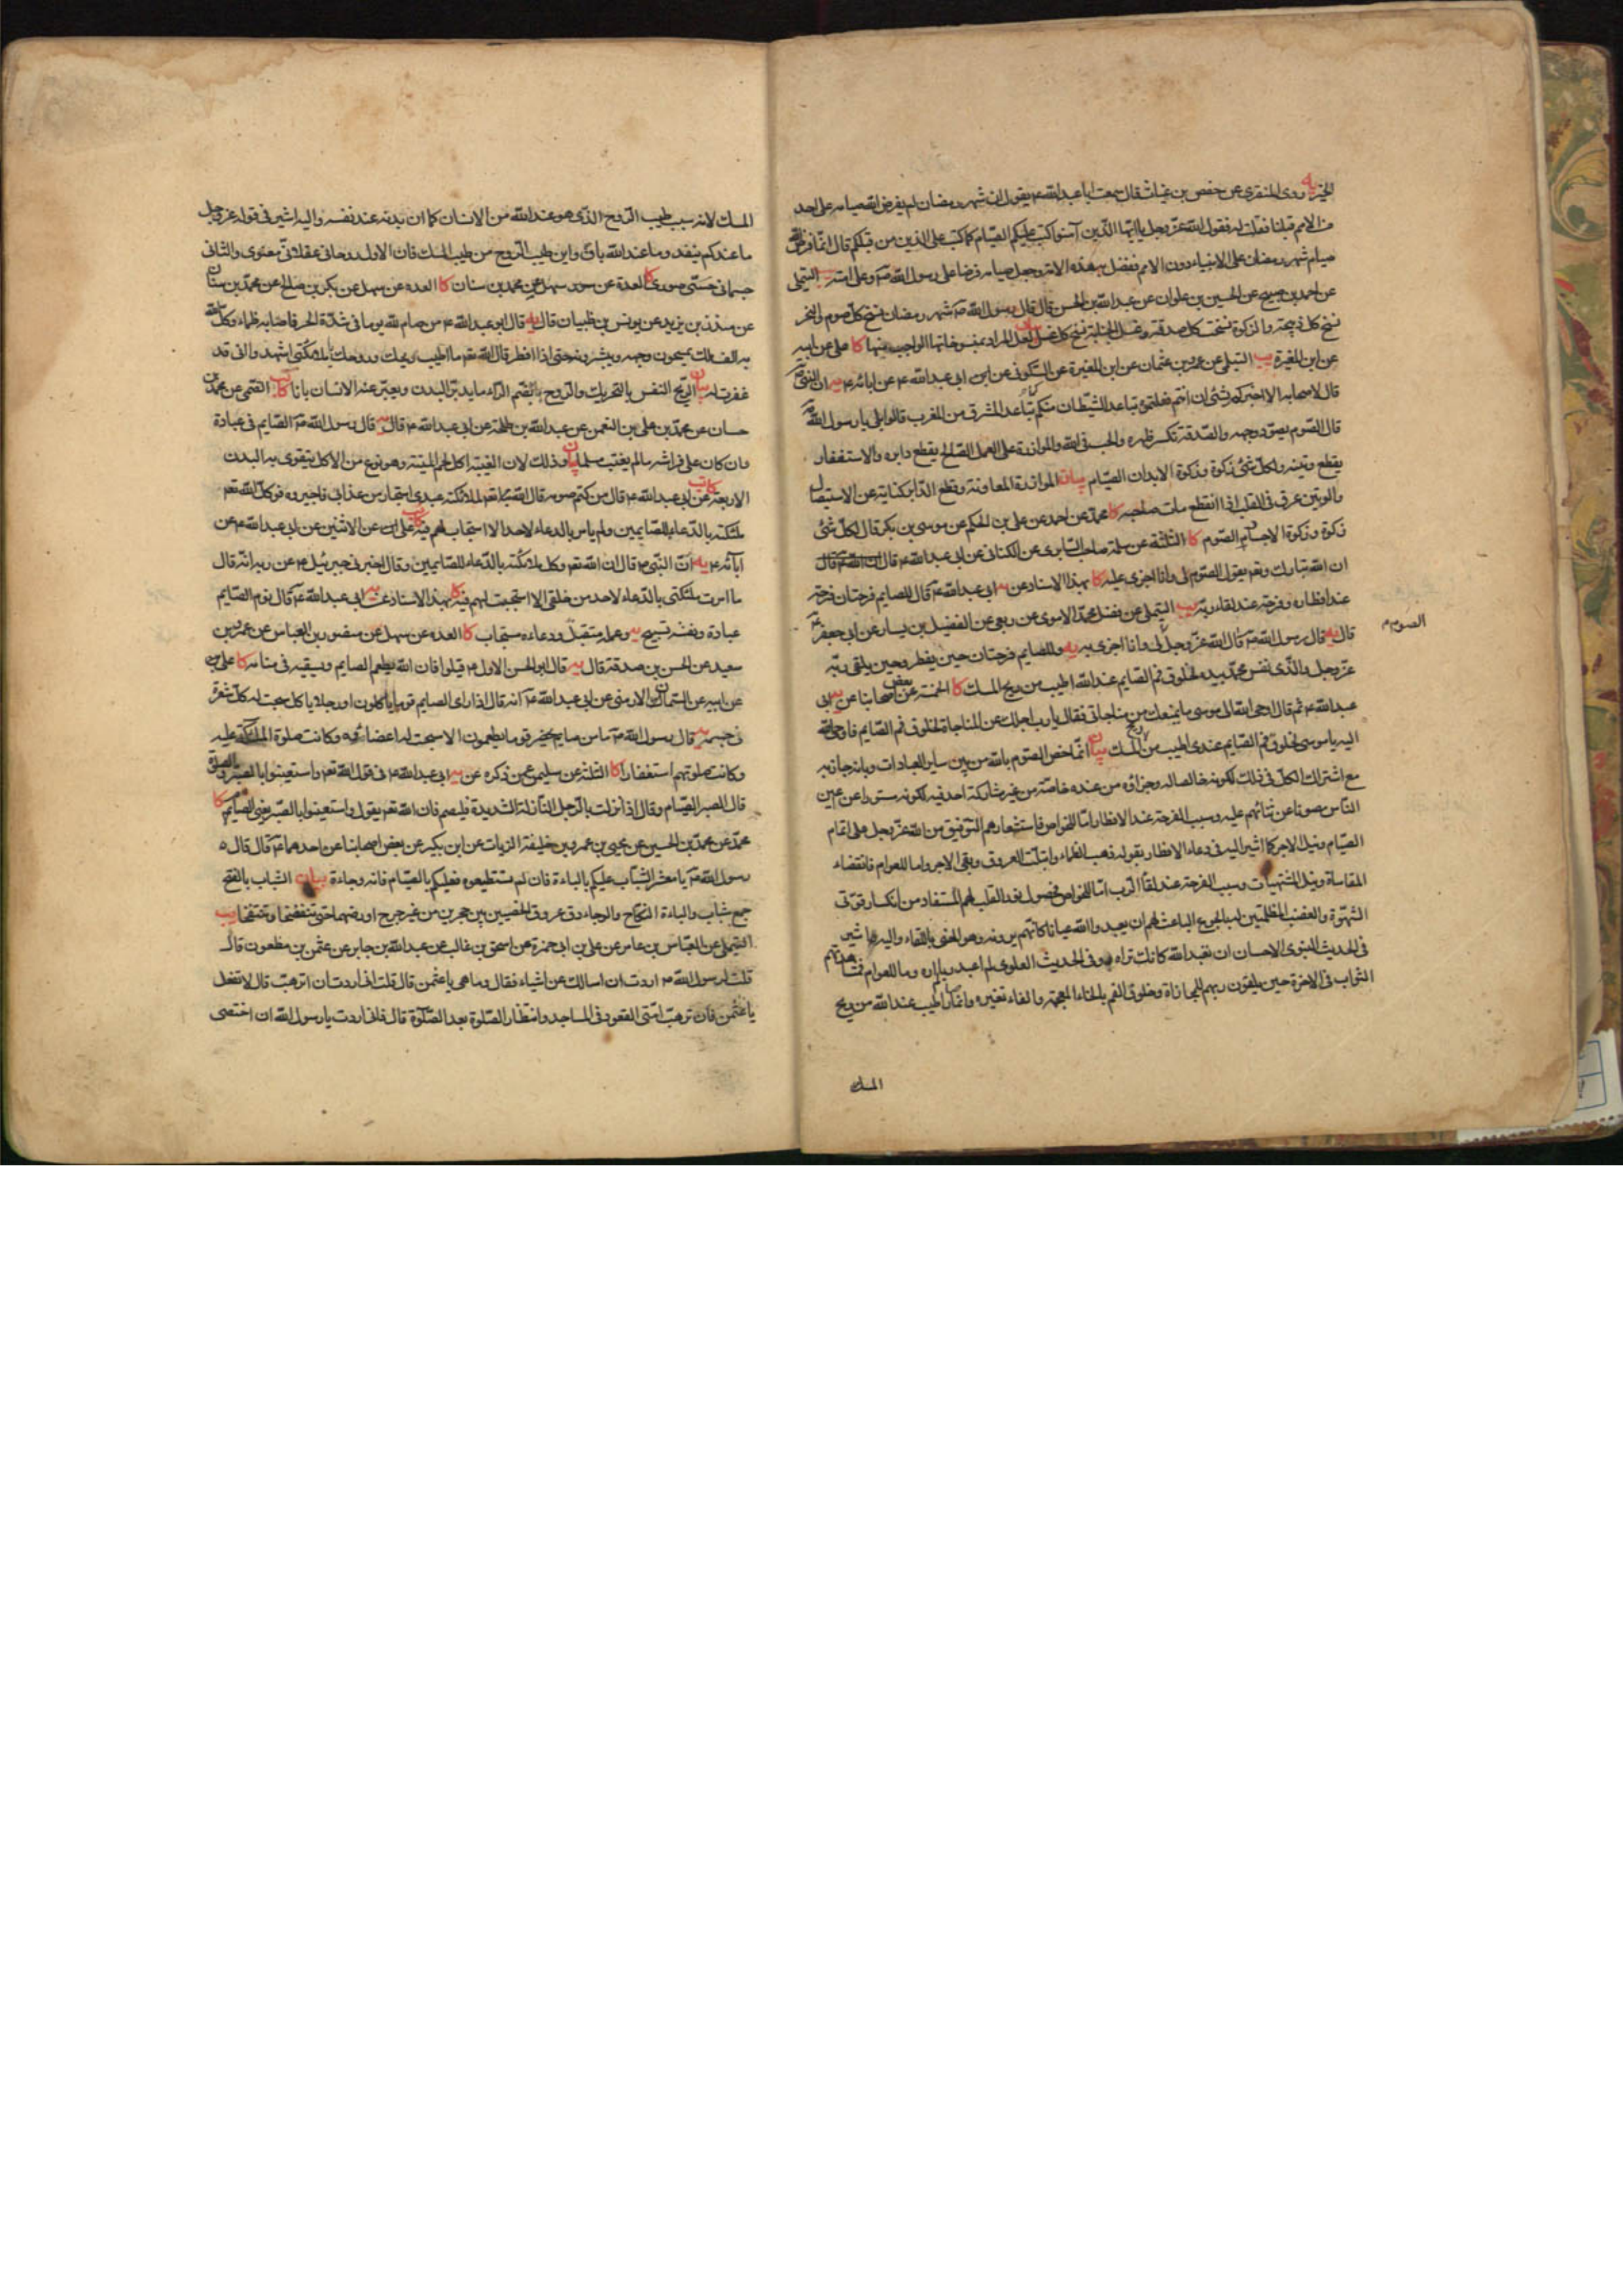 الخبر يه روى المنقرى عن حفص بن غياث قال سمعت ابا عبدالله ع يقول ان شهر رمضان لم يفرض الله صيامه على احد
من الامم قبلنا فقلت له فقول الله عز وجل يا ايها الذين آمنوا كتب عليكم الصيام كما كتب على الذين من قبلكم قال انما فرض الله
صيام شهر رمضان على الانبياء دون الامم ففضل به هذه الامة وجعل صيامه فرضا على رسول الله ص وعلى امته يب التيملى
عن احمد بن صبيح عن الحسين بن علوان عن عبدالله بن الحسن قال قال رسول الله ص شهر رمضان نسخ كل صوم والنحر
نسخ كل ذبيحة والزكوة نسخت كل صدقة وغسل الجنابة نسخ كل غسل بيان لعل المراد بنسخ الواجب منها كا على عن ابيه
عن ابن المغيرة يب التيملى عن عمرو بن عثمان عن ابن المغيرة عن السكونى عن ابى عبدالله ع عن ابائه ع يه ان النبى ص
قال لاصحابه الا اخبركم بشئ ان انتم فعلتموه تباعد الشيطان منكم كما تباعد المشرق من المغرب قالوا بلى يا رسول الله ص
قال الصوم يسود وجهه والصدقة تكسر ظهره والحب فى الله والموازرة على العمل الصالح يقطع دابره والاستغفار
يقطع وتينه ولكل شئ زكوة وزكوة الابدان الصيام بيان الموازرة المعاونة وقطع الدابر كناية عن الاستيصال
والوتين عرق فى القلب اذا انقطع مات صاحبه كا محمد عن احمد عن على بن الحكم عن موسى بن بكر قال لكل شئ
زكوة وزكوة الاجسام الصوم كا الثلثة عن سلمة صاحب السابرى عن الكنانى عن ابى عبدالله ع قال
ان الله تبارك وتع يقول الصوم لى وانا اجزى عليه كا بهذا الاسناد عن يه ابى عبدالله ع قال للصايم فرحتان فرحة
عند افطاره وفرحة عند لقاء ربه يب التيملى عن محمد الاموى عن ربعى عن الفضيل بن يسار عن ابى جعفر ع
قال يه قال رسول الله ص قال الله عز وجل الصوم لى وانا اجزى به يه وللصايم فرحتان حين يفطر وحين يلقى ربه
عز وجل والذى نفس محمد بيده لخلوف فم الصايم عند الله اطيب من ريح المسك كا الخمسة عن بعض اصحابنا عن يه ابى
عبدالله ع ثم قال اوحى الله الى موسى ما يمنعك من مناجاتى فقال يا رب اجلك عن المناجاة لخلوف فم الصايم فاوحى الله
اليه يا موسى لخلوف فم الصايم عندى اطيب من ريح المسك بيان انما خص الصوم بالله من بين ساير العبادات وبانه جاز به
مع اشتراك الكل فى ذلك لكونه خالصا له وجزاؤه من عنده خاصة من غير مشاركة احد فيه لكونه مستورا عن اعين
الناس مصونا عن ثنائهم عليه وسبب الفرحة عند الافطار اما للخواص فاستشعارهم التوفيق من الله عز وجل على اتمام
الصيام ونيل الاجر كما اشير اليه فى دعاء الافطار بقوله ذهب الظماء وابتلت العروق وبقى الاجر واما للعوام فانقضاء
المقاساة ونيل المشتهيات وسبب الفرحة عند لقاء الرب اما للخواص فحصول نور القلب لهم المستفاد من انكسار قوتى
الشهوة والغضب المظلمتين له بالجوع الباعث لهم ان يعبدوا الله عيانا كانهم يرونه وهو المعنى باللقاء واليه اشير
فى الحديث النبوى الاحسان ان تعبد الله كانك تراه وفى الحديث العلوى لم اعبد ربا لم اره وما للعوام فمشاهدتهم
الثواب فى الاخرة حين يلقون ربهم للمجازاة وخلوف الفم بالخاء المعجمة والفاء تغيره وانما كان اطيب عند الله من ريح
المسك
الصوم م
المسك لانه سبب طيب الروح الذى هو عند الله من الانسان كما ان بدنه عند نفسه واليه اشير فى قوله عز وجل
ما عندكم ينفد وما عند الله باق واين طيب الروح من طيب المسك فان الاول روحانى عقلانى معنوى والثانى
جسمانى حسى صورى كا العدة عن سهل عن محمد بن سنان كا العدة عن سهل عن بكر بن صالح عن محمد بن سنان
عن منذر بن يزيد عن يونس بن ظبيان قال يه قال ابو عبدالله ع من صام لله يوما فى شدة الحر فاصابه ظماء وكل الله
به الف ملك يمسحون وجهه ويبشرونه حتى اذا افطر قال الله تع ما اطيب ريحك وروحك يا ملائكتى اشهدوا انى قد
غفرت له بيان الريح النفس بالتحريك والروح بضم الراء ما يدبر البدن ويعبر عنه الانسان بانا كا يب القمى عن محمد بن
حسان عن محمد بن على بن النعمن عن عبدالله بن طلحة عن ابى عبدالله ع قال يه قال رسول الله ص الصايم فى عبادة
وان كان على فراشه ما لم يغتب مسلما بيان وذلك لان الغيبة اكل لحم الميتة وهو نوع من الاكل يتقوى به البدن
كا يب الاربعة عن ابى عبدالله ع قال من كتم صومه قال الله تع لملائكته عبدى استجار من عذابى فاجيروه ووكل الله تع
ملئكته بالدعاء للصايمين ولم يامر بالدعاء لاحد الا استجاب لهم فيه كا على عن الاثنين عن ابى عبدالله ع عن
آبائه ع يه ان النبى ص قال ان الله تع وكل ملائكته بالدعاء للصايمين وقال اخبرنى جبرئيل ع عن ربه انه قال
ما امرت ملئكتى بالدعاء لاحد من خلقى الا استجبت لهم فيه كا بهذا الاسناد عن يه ابى عبدالله ع قال نوم الصايم
عبادة ونفسه تسبيح يه وعمله متقبل ودعاءه مستجاب كا العدة عن سهل عن منصور بن العباس عن عمرو بن
سعيد عن الحسن بن صدقة قال يه قال ابو الحسن الاول ع قيلوا فان الله يطعم الصايم ويسقيه فى منامه كا على عن
عن ابيه عن السمان الارمنى عن ابى عبدالله ع انه قال اذا راى الصايم قوما ياكلون او رجلا ياكل سبحت له كل شعرة
فى جسمه يه قال رسول الله ص ما من صايم يحضر قوما يطعمون الا سبحت له اعضائه وكانت صلوة الملئكة عليه
وكانت صلوتهم استغفارا كا الثلثة عن سليمن عمن ذكره عن يه ابى عبدالله ع فى قول الله تع واستعينوا بالصبر والصلوة
قال الصبر الصيام وقال اذا نزلت بالرجل النازلة الشديدة فليصم فان الله تع يقول واستعينوا بالصبر يعنى الصيام كا
محمد عن محمد بن الحسين عن يحيى بن عمرو بن خليفة الزيات عن ابن بكير عن بعض اصحابنا عن احدهما ع قال قال
رسول الله ص يا معشر الشباب عليكم بالباءة فان لم تستطيعوه فعليكم بالصيام فانه وجاءة بيان الشباب بالفتح
جمع شاب والباءة النكاح والوجاء دق عروق الخصيين بين حجرين من غير جرح او رضهما حتى تنفضخا يب
التيملى عن العباس بن عامر عن على بن ابى حمزة عن اسحق بن غالب عن عبدالله بن جابر عن عثمن بن مظعون قال
قلت لرسول الله ص اردت ان اسالك عن اشياء فقال وما هى يا عثمن قال قلت انى اردت ان اترهب قال لا تفعل
يا عثمن فان ترهب امتى القعود فى المساجد وانتظار الصلوة بعد الصلوة قال فانى اردت يا رسول الله ان اختصى